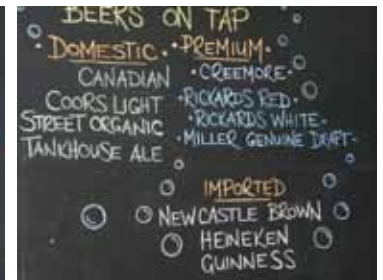 BEERS ON TAP
DOMESTIC
CANADIAN
COORS LIGHT
STREET ORGANIC
TANKHOUSE ALE
PREMIUM
CREEMORE
RICKARDS RED
RICKARDS WHITE
MILLER GENUINE DRAFT
IMPORTED
NEWCASTLE BROWN
HEINEKEN
GUINNESS